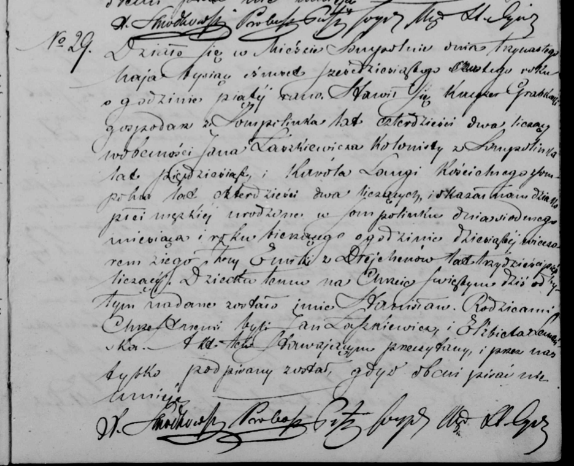 X. Smodkowski Proboszcz
No 29. Działo się w Mieście Sompolnie dnia trzynastego
Maja tysiąc ośmset sześćdziesiątego szóstego roku
o godzinie piątej rano. Stawił się Kacper Grabski
gospodarz z Sompolinka lat czterdzieści dwa liczący
w obecności Jana Laszkiewicza Kolonisty z Sompolinka
lat pięćdziesiąt i Karola Langi Kościelnego z Som
polna lat czterdzieści dwa liczących, i okazał nam dziecię
płci męzkiej urodzone w Sompolinku dnia siódmego
miesiąca i roku bieżącego o godzinie dziesiątej wieczo
rem z jego żony z lat trzydzieści
liczącej. Dziecku temu na Chrzcie Świętym dziś od
tym nadane zostało imie Stanisław. Rodzicami
Chrzestnemi byli Jan Laszkiewicz, i Elżbieta
ska. Akt ten stawającym przeczytany, i przez nas
tylko podpisany został, gdyż obecni pisać nie
umieją
X. Smodkowski Proboszcz